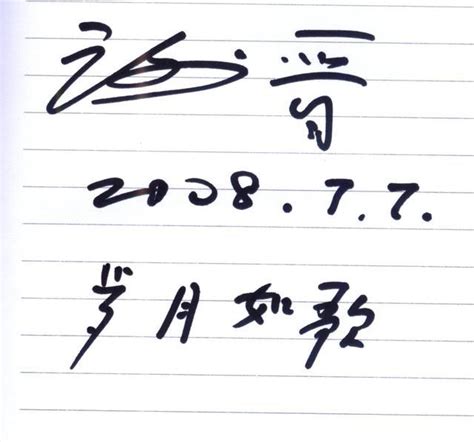 2008.7.7.
岁月如歌